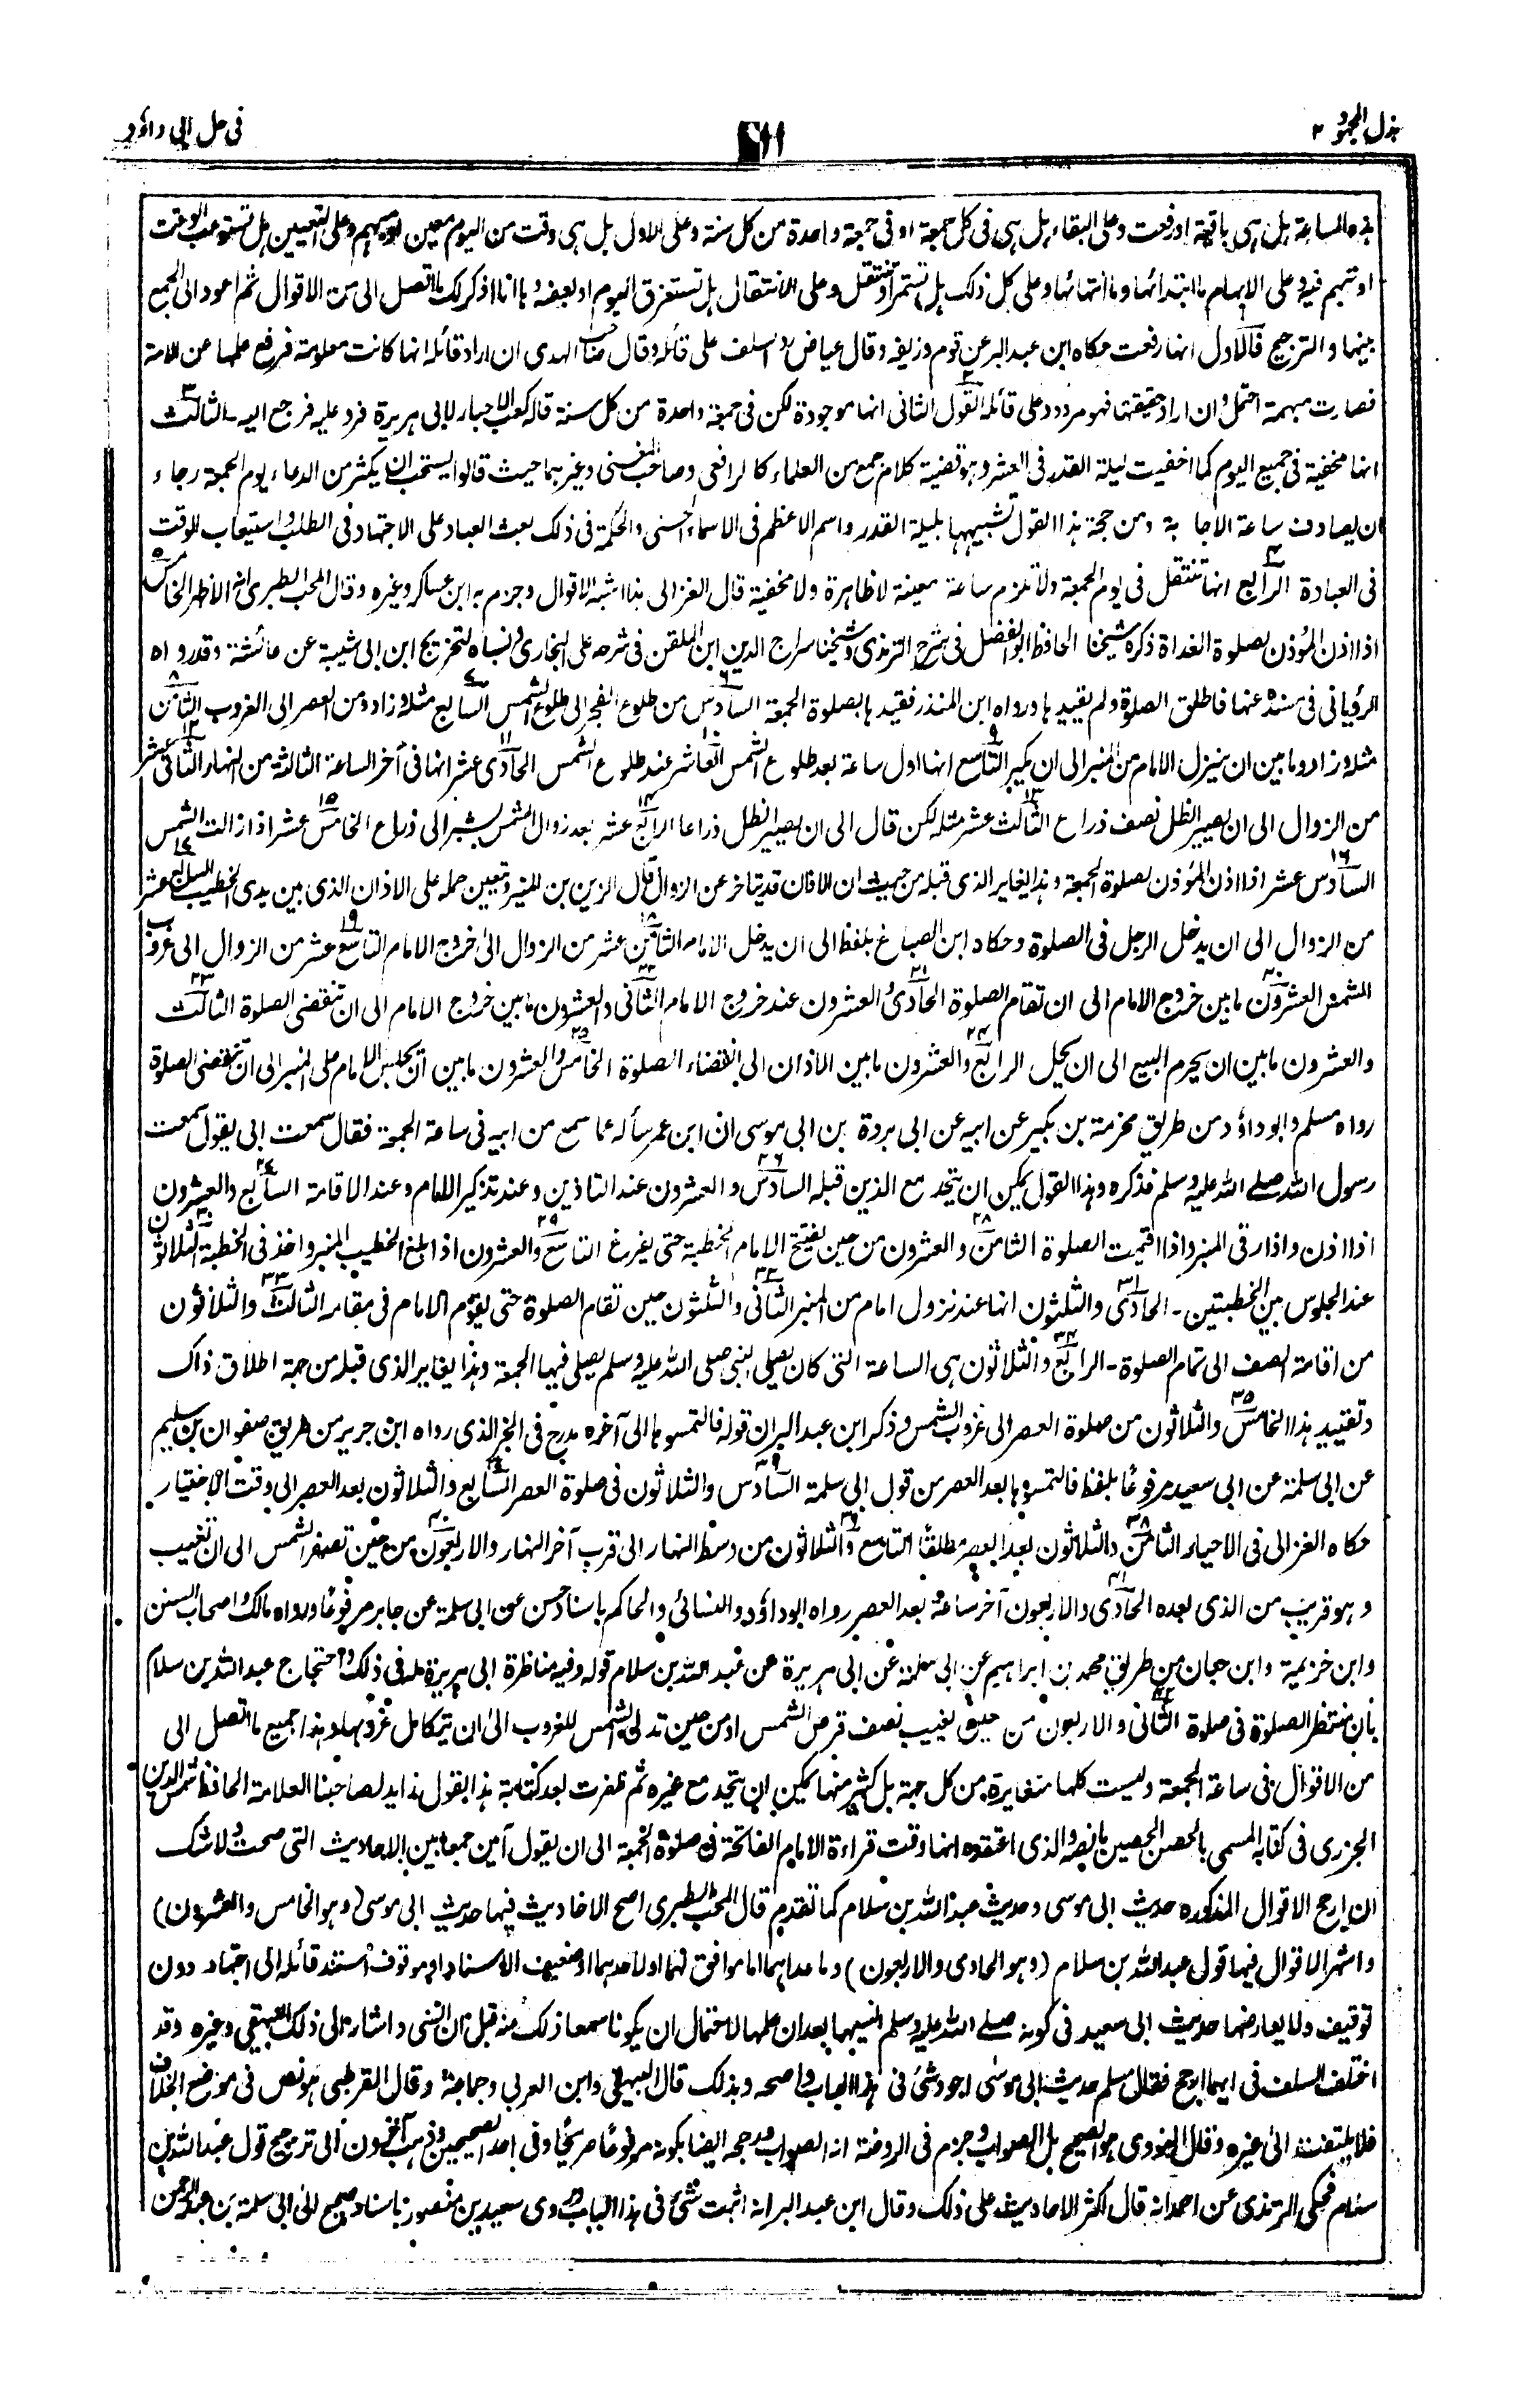 بذل المجهود ٢
١١
في حل ابي داؤد
هذه الساعة بل هي باقية او رفعت وعلى البقاء بل هي في كل جمعة او في جمعة واحدة من كل سنة وعلى الاول بل هي وقت من اليوم معين او مبهم وعلى التعيين بل تستوعب الوقت
او تبهم فيه وعلى الابهام ما ابتدائها وما انتهائها وعلى كل ذلك بل تستمر او تنتقل وعلى الانتقال بل تستغرق اليوم او بعضه وها انا اذكر لك ما اتصل الى من الاقوال ثم اعود الى الجمع
بينها والترجيح فالاول انها رفعت حكاه ابن عبد البر عن قوم وزيفه وقال عياض رد السلف على قائله وقال صاحب الهدى ان اراد قائله انها كانت معلومة فرفع علمها عن الامة
فصارت مبهمة احتمل وان اراد حقيقتها فهو مردود على قائله القول الثاني انها موجودة لكن في جمعة واحدة من كل سنة قاله كعب الاحبار لابي هريرة فرد عليه فرجع اليه ـ الثالث
انها مخفية في جميع اليوم كما اخفيت ليلة القدر في العشر وهو قضية كلام جمع من العلماء كالرافعي وصاحب المغنى وغيرهما حيث قالوا يستحب ان يكثر من الدعاء يوم الجمعة رجاء
ان يصادف ساعة الاجابة ومن حجة هذا القول تشبيهها بليلة القدر واسم الاعظم في الاسماء الحسنى والحكمة في ذلك بعث العباد على الاجتهاد في الطلب واستيعاب للوقت
في العبادة الرابع انها تنتقل في يوم الجمعة ولا تلزم ساعة معينة لا ظاهرة ولا مخفية قال الغزالى هذا اشبه الاقوال وجزم به ابن عساكر وغيره وقال المحب الطبرى انه الاظهر الخامس
اذا اذن المؤذن لصلوة الغداة ذكره شيخنا الحافظ ابو الفضل في شرح الترمذى وشيخنا سراج الدين ابن الملقن في شرحه على البخارى ونسباه لتخريج ابن ابي شيبة عن عائشة وقد رواه
الرؤياني في مسنده عنها فاطلق الصلوة ولم يقيدها ورواه ابن المنذر فقيدها بصلوة الجمعة السادس من طلوع الفجر الى طلوع الشمس السابع مثله وزاد ومن العصر الى الغروب الثامن
مثله وزاد وما بين ان ينزل الامام من المنبر الى ان يكبر التاسع انها اول ساعة بعد طلوع الشمس العاشر عند طلوع الشمس الحادى عشر انها في آخر الساعة الثالثة من النهار الثاني عشر
من الزوال الى ان يصير الظل نصف ذراع الثالث عشر مثله لكن قال الى ان يصير الظل ذراعا الرابع عشر بعد زوال الشمس بشبر الى ذراع الخامس عشر اذا زالت الشمس
السادس عشر اذا اذن المؤذن لصلوة الجمعة وهذا يغاير الذى قبله من حيث ان الاذان قد يتاخر عن الزوال قال الزين بن المنير ويتعين حمله على الاذان الذى بين يدى الخطيب السابع عشر
من الزوال الى ان يدخل الرجل في الصلوة وحكاه ابن الصباغ بلفظ الى ان يدخل الامام الثامن عشر من الزوال الى خروج الامام التاسع عشر من الزوال الى غروب
الشمس العشرون ما بين خروج الامام الى ان تقام الصلوة الحادى والعشرون عند خروج الامام الثاني والعشرون ما بين خروج الامام الى ان تنقضى الصلوة الثالث
والعشرون ما بين ان يحرم البيع الى ان يحل الرابع والعشرون ما بين الاذان الى انقضاء الصلوة الخامس والعشرون ما بين ان يجلس الامام على المنبر الى ان تنقضى الصلوة
رواه مسلم وابو داؤد من طريق مخرمة بن بكير عن ابيه عن ابي بردة بن ابي موسى ان ابن عمر سأله عما سمع من ابيه في ساعة الجمعة فقال سمعت ابى يقول سمعت
رسول الله صلے الله عليه وسلم فذكره وهذا القول يمكن ان يتحد مع الذين قبله السادس والعشرون عند التاذين وعند تذكير الامام وعند الاقامة السابع والعشرون
اذا اذن واذا رقى المنبر واذا اقيمت الصلوة الثامن والعشرون من حين يفتتح الامام الخطبة حتى يفرغ التاسع والعشرون اذا بلغ الخطيب المنبر واخذ في الخطبة الثلاثون
عند الجلوس بين الخطبتين ـ الحادى والثلثون انها عند نزول امام من المنبر الثاني والثلثون حين تقام الصلوة حتى يقوم الامام في مقامه الثالث والثلاثون
من اقامة الصف الى تمام الصلوة ـ الرابع والثلاثون هي الساعة التى كان يصلى النبى صلى الله عليه وسلم يصلى فيها الجمعة وهذا يغاير الذى قبله من جهة اطلاق ذاك
وتقييد هذا الخامس والثلاثون من صلوة العصر الى غروب الشمس وذكر ابن عبد البر ان قوله فالتمسوها الى آخره مدرج في الخبر الذى رواه ابن جرير من طريق صفوان بن سليم
عن ابي سلمة عن ابي سعيد مرفوعًا بلفظ فالتمسوها بعد العصر من قول ابي سلمة السادس والثلاثون في صلوة العصر السابع والثلاثون بعد العصر الى وقت الاختيار
حكاه الغزالى في الاحياء الثامن والثلاثون بعد العصر مطلقًا التاسع والثلاثون من وسط النهار الى قرب آخر النهار والاربعون من حين تصفر الشمس الى ان تغيب
وهو قريب من الذى بعده الحادى والاربعون آخر ساعة بعد العصر رواه ابو داؤد والنسائي والحاكم باسناد حسن عن ابي سلمة عن جابر مرفوعًا ورواه مالك واصحاب السنن
وابن خزيمة وابن حبان من طريق محمد بن ابراهيم عن ابي سلمة عن ابي هريرة عن عبد الله بن سلام قوله وفيه مناظرة ابي هريرة له في ذلك واحتجاج عبد الله بن سلام
بان منتظر الصلوة في صلوة الثاني والاربعون من حين يغيب نصف قرص الشمس او من حين تدلى الشمس للغروب الى ان يتكامل غروبها وهذا جميع ما اتصل الى
من الاقوال في ساعة الجمعة وليست كلها متغايرة من كل جهة بل كثير منها يمكن ان يتحد مع غيره ثم ظفرت بعد كتابة هذا بقول زايد لصاحبنا العلامة الحافظ شمس الدين
الجزرى في كتابه المسمى بالحصن الحصين ما نصه والذى اعتقده انها وقت قراءة الامام الفاتحة في صلوة الجمعة الى ان يقول آمين جمعا بين الاحاديث التى صحت ولا شك
ان ارجح الاقوال المذكورة حديث ابي موسى وحديث عبد الله بن سلام كما تقدم قال المحب الطبرى اصح الاحاديث فيها حديث ابي موسى (وهو الخامس والعشرون)
واشهر الاقوال فيها قول عبد الله بن سلام (وهو الحادى والاربعون) وما عداهما اما موافق لهما او لاحدهما او ضعيف الاسناد او موقوف استند قائله الى اجتهاد دون
توقيف ولا يعارضها حديث ابي سعيد في كونه صلے الله عليه وسلم انسيها بعد ان علمها لاحتمال ان يكونا سمعا ذلك منه قبل ان انسى واشار الى ذلك البيهقي وغيره وقد
اختلف السلف في ايهما ارجح فقال مسلم حديث ابي موسى اجود شئ في هذا الباب واصحه وبذلك قال البيهقي وابن العربى وجماعة وقال القرطبى هو نص في موضع الخلاف
فلا يلتفت الى غيره وقال النووى هو الصحيح بل الصواب وجزم في الروضة انه الصواب ورجحه ايضا بكونه مرفوعًا صريحًا وفى احد الصحيحين وذهب آخرون الى ترجيح قول عبد الله بن
سلام فحكى الترمذى عن احمد انه قال اكثر الاحاديث على ذلك وقال ابن عبد البر انه اثبت شئ في هذا الباب وروى سعيد بن منصور باسناد صحيح الى ابي سلمة بن عبد الرحمن